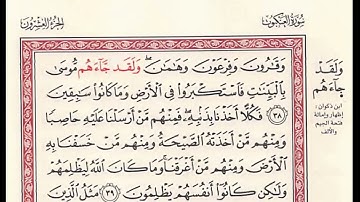 سورة العنكبوت
الجزء العشرون
وَقَـٰرُونَ وَفِرْعَوْنَ وَهَـٰمَـٰنَ ۖ وَلَقَدْ جَآءَهُم مُّوسَىٰ
بِٱلْبَيِّنَـٰتِ فَٱسْتَكْبَرُوا۟ فِى ٱلْأَرْضِ وَمَا كَانُوا۟ سَـٰبِقِينَ
٣٨ فَكُلًّا أَخَذْنَا بِذَنۢبِهِۦ ۖ فَمِنْهُم مَّنْ أَرْسَلْنَا عَلَيْهِ حَاصِبًا
وَمِنْهُم مَّنْ أَخَذَتْهُ ٱلصَّيْحَةُ وَمِنْهُم مَّنْ خَسَفْنَا بِهِ
ٱلْأَرْضَ وَمِنْهُم مَّنْ أَغْرَقْنَا ۚ وَمَا كَانَ ٱللَّهُ لِيَظْلِمَهُمْ
وَلَـٰكِن كَانُوٓا۟ أَنفُسَهُمْ يَظْلِمُونَ ٣٩ مَثَلُ ٱلَّذِينَ
وَلَقَد
جَآءَهُم
ابن ذكوان:
إظهار وإمالة
فتحة الجيم
والألف.